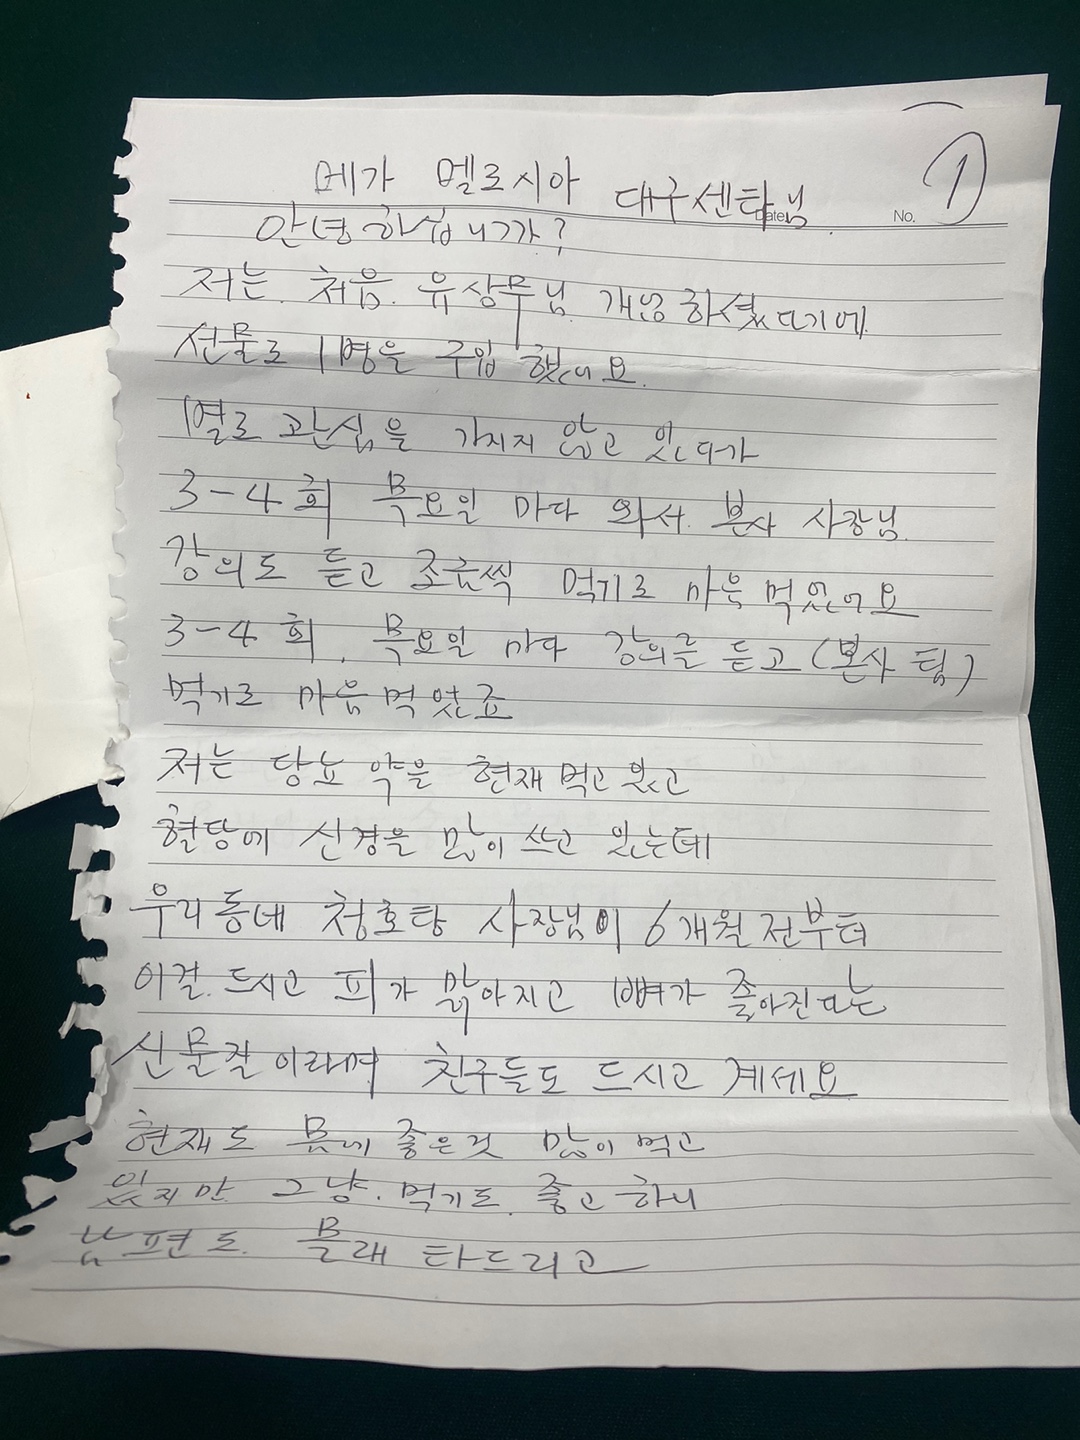 메가 멜로시아 대구센타님
Date
No. 1
안녕하십니까?
저는. 처음. 유상무님. 개업하셨다기에
선물로 1병을 구입했어요.
별로 관심을 가지지 않고 있다가
3-4회 목요일 마다 와서. 본사 사장님.
강의도 듣고 조금씩 먹기로 마음먹었어요
3-4회. 목요일 마다 강의를 듣고 (본사 팀)
먹기로 마음먹었죠
저는 당뇨 약을 현재 먹고 있고
혈당에 신경을 많이 쓰고 있는데
우리동네 청호탕 사장님이 6개월 전부터
이걸. 드시고 피가 맑아지고 뼈가 좋아진다는
산물질이라며 친구들도 드시고 계세요
현재도 몸에 좋은것 많이 먹고
있지만 그냥. 먹기도. 좋고 하니
남편도. 몰래 타드리고